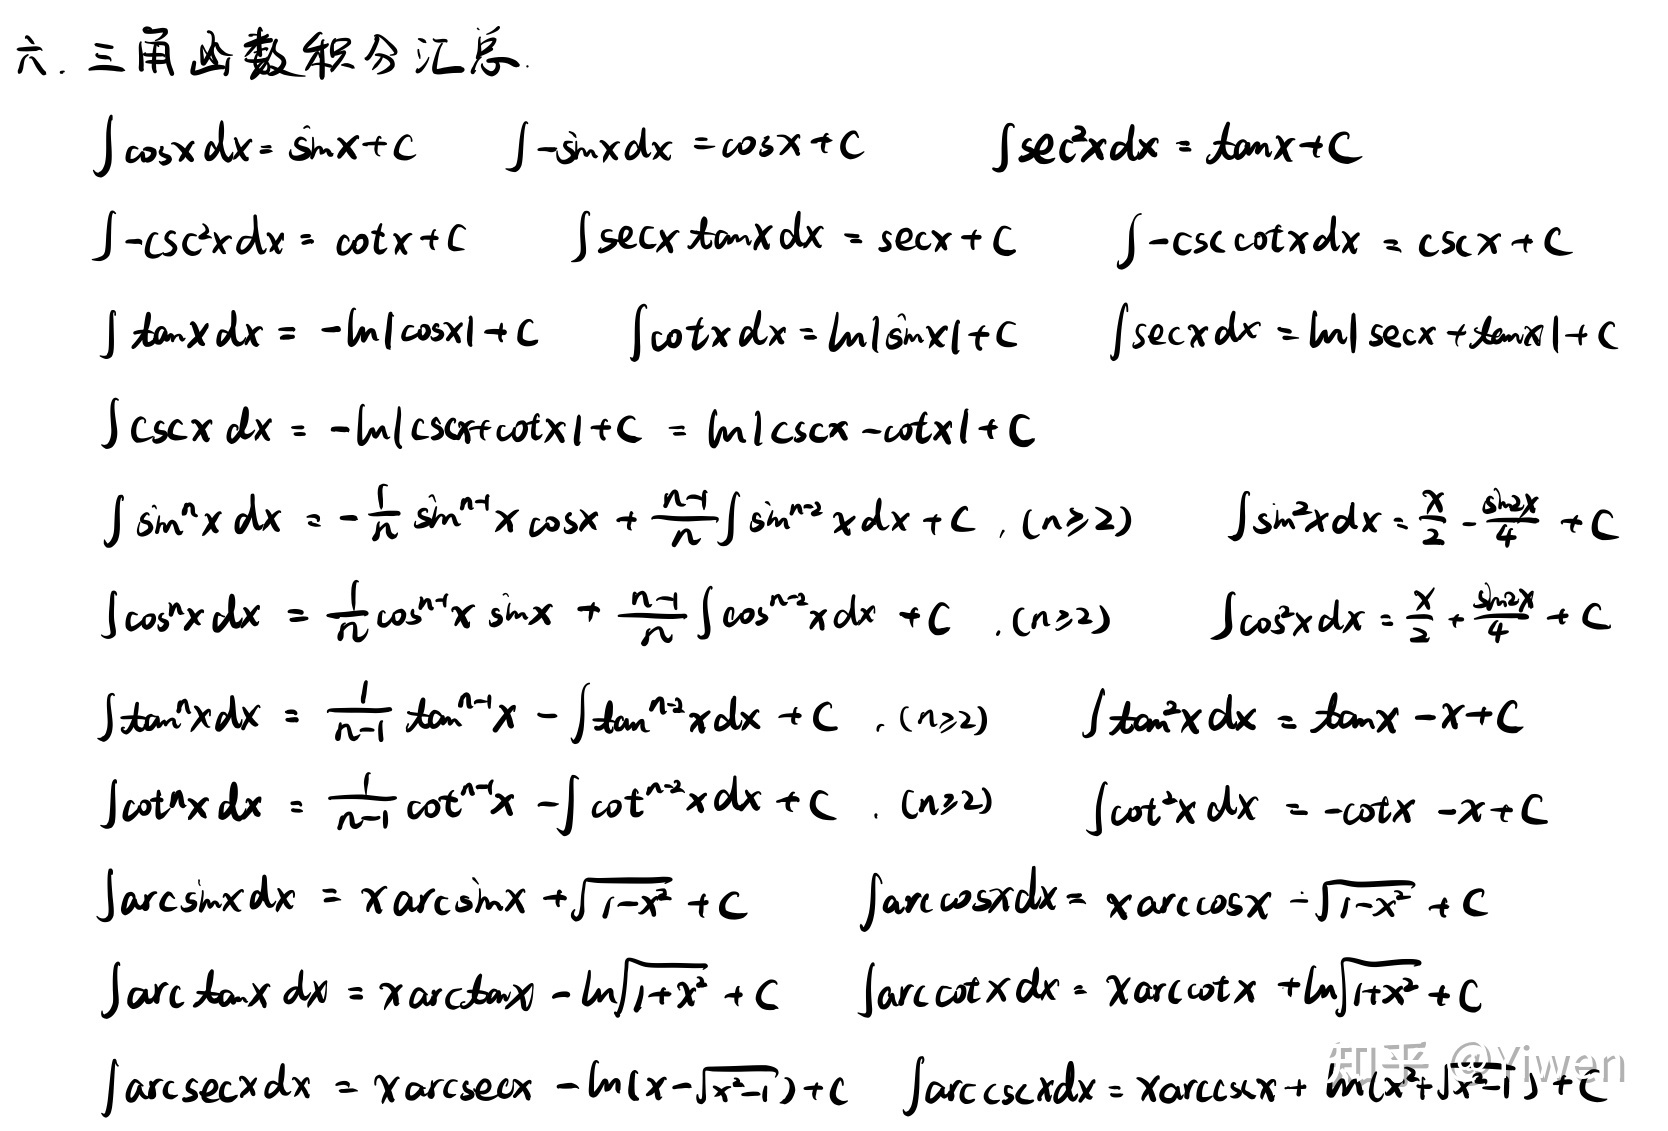 六. 三角函数积分汇总.
∫cosxdx = sinx+C ∫-sinxdx = cosx+C ∫sec²xdx = tanx+C
∫-csc²xdx = cotx+C ∫secxtanxdx = secx+C ∫-csccotxdx = cscx+C
∫tanxdx = -ln|cosx|+C ∫cotxdx = ln|sinx|+C ∫secxdx = ln|secx+tanx|+C
∫cscxdx = -ln|cscx+cotx|+C = ln|cscx-cotx|+C
∫sinⁿxdx = -1/n sinⁿ⁻¹xcosx + (n-1)/n ∫sinⁿ⁻²xdx+C, (n≥2) ∫sin²xdx = x/2 - sin2x/4 + C
∫cosⁿxdx = 1/n cosⁿ⁻¹xsinx + (n-1)/n ∫cosⁿ⁻²xdx + C . (n≥2) ∫cos²xdx = x/2 + sin2x/4 + C
∫tanⁿxdx = 1/(n-1) tanⁿ⁻¹x - ∫tanⁿ⁻²xdx + C , (n≥2) ∫tan²xdx = tanx-x+C
∫cotⁿxdx = 1/(n-1) cotⁿ⁻¹x - ∫cotⁿ⁻²xdx + C . (n≥2) ∫cot²xdx = -cotx-x+C
∫arcsinxdx = xarcsinx+√(1-x²)+C ∫arccosxdx = xarccosx-√(1-x²)+C
∫arctanxdx = xarctanx-ln√(1+x²)+C ∫arccotxdx = xarccotx+ln√(1+x²)+C
∫arcsecxdx = xarcsecx-ln(x-√(x²-1))+C ∫arccscxdx = xarccscx+ln(x²+√(x²-1))+C
知乎 @Yiwen